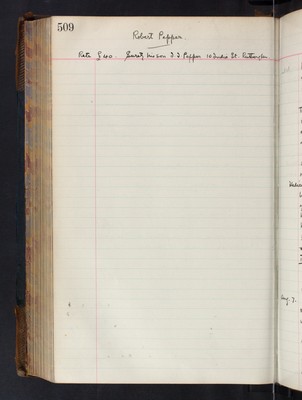 509
Robert Pepper.
Rate £40. Surety his son J. J. Pepper 10 India St.
Aug. 7.